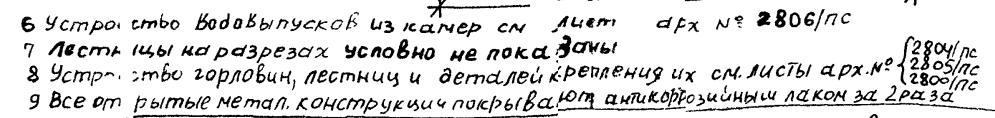 6 Устройство водовыпусков из камер см лист арх № 2806/пс
7 Лестницы на разрезах условно не показаны
8 Устройство горловин, лестниц и деталей крепления их см. листы арх. № {2804/пс
2805/пс
2800/пс
9 Все открытые метал. конструкции покрывают антикоррозийным лаком за 2 раза